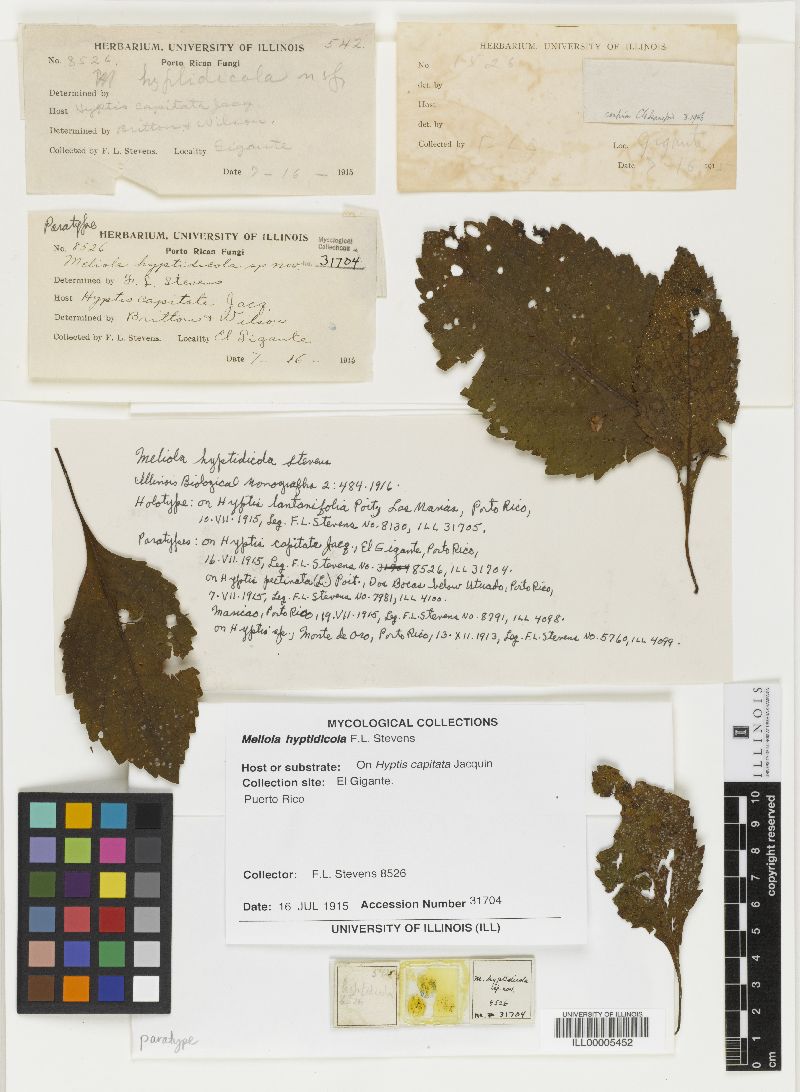 HERBARIUM, UNIVERSITY OF ILLINOIS 542.
No. 8526. Porto Rican Fungi
M hyptidicola n sp.
Determined by
Host Hyptis capitata Jacq.
Determined by Britton & Wilson.
Collected by F. L. Stevens. Locality Gigante
Date 7-16- 1915
HERBARIUM, UNIVERSITY OF ILLINOIS
No
det. by
Host
det. by
Collected by
Loc. Gigante
Date 7-16 1915
Paratype
HERBARIUM, UNIVERSITY OF ILLINOIS
No. 8526 Porto Rican Fungi
Mycological
Collections
31704
Meliola hyptidicola sp nov
Determined by F. L. Stevens
Host Hyptis capitata Jacq.
Determined by Britton & Wilson
Collected by F. L. Stevens. Locality El Gigante
Date 7- 16 - 1915
Meliola hyptidicola Stevens
Illinois Biological Monographs 2:484.1916.
Holotype: on Hyptis lantanifolia Poit, Las Marias, Porto Rico,
10.VII.1915, Leg. F.L. Stevens No. 8130, ILL 31705.
Paratypes: on Hyptis capitata Jacq., El Gigante, Porto Rico,
16.VII.1915, Leg. F.L. Stevens No. 31704 8526, ILL 31704.
on Hyptis pectinata (L.) Poit., Dos Bocas below Utuado, Porto Rico,
7.VII.1915, Leg. F.L. Stevens No. 7981, ILL 4100.
Maricao, Porto Rico, 19.VII.1915, Leg. F.L. Stevens No. 8791, ILL 4098.
on Hyptis sp., Monte de Oro, Porto Rico, 13.XII.1913, Leg. F.L. Stevens No. 5760, ILL 4099.
MYCOLOGICAL COLLECTIONS
Meliola hyptidicola F.L. Stevens
Host or substrate: On Hyptis capitata Jacquin
Collection site: El Gigante.
Puerto Rico
Collector: F.L. Stevens 8526
Date: 16 JUL 1915 Accession Number 31704
UNIVERSITY OF ILLINOIS (ILL)
hyptidicola
8526
M. hyptidicola
sp. nov.
8526
31704
UNIVERSITY OF ILLINOIS
ILL00005452
paratype
ILLINOIS
copyright reserved
0 1 2 3 4 5 6 7 8 9 10
cm